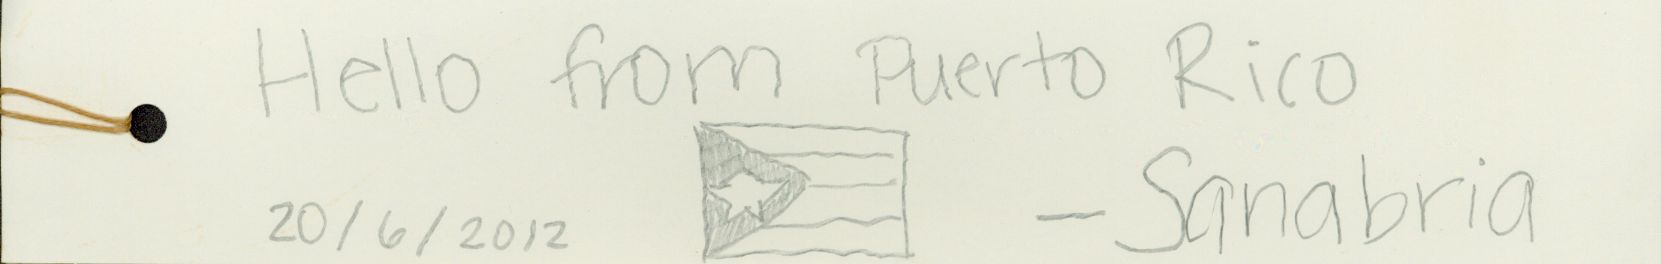 Hello from Puerto Rico
20/6/2012
— Sanabria